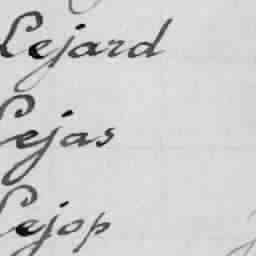 Lejard
Lejas
Lejop